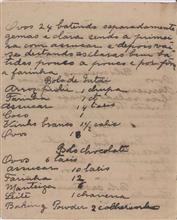 Ovos 24 batendo separadamente
gemas e clara sendo a primei
ra com assucar e depois vai
se deitando as claras bem ba
tidas pouco a pouco e por fim
a farinha
Bolo de
Arros 1 chicara
Farinha 1
Assucar 1/4 latis
Coco 1
Vinho branco 1/2 calix
Ovos 18
Bolo chocolate
Ovos 6
Assucar 10
Farinha 12
Manteiga 6
Leite 1 chavena
Baking Powder 2 colherinhas